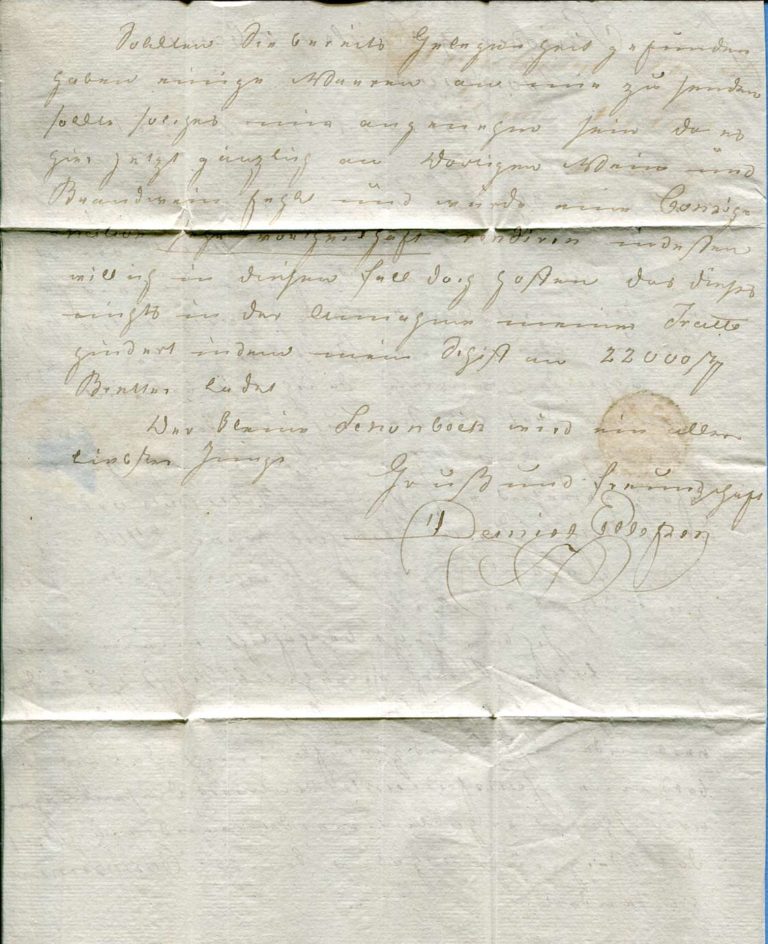 Sollten Sie bereits Gelegenheit gefunden
haben einige Waaren an mir zu senden
sollte solches mir angenehm sein da es
hier jetzt gänzlich an dortigen Wein und
Brandwein fehlt und würde eine Consig
nation vortheilhaft rendiren indessen
will ich in diesen fall doch hoffen das dieses
nichts in der Annahme meiner Tratte
hindert indem mein Schiff an 22000
Bretter ladet
Der kleine wird ein aller
liebster Junge
Gruß und freundschaft
Daniel